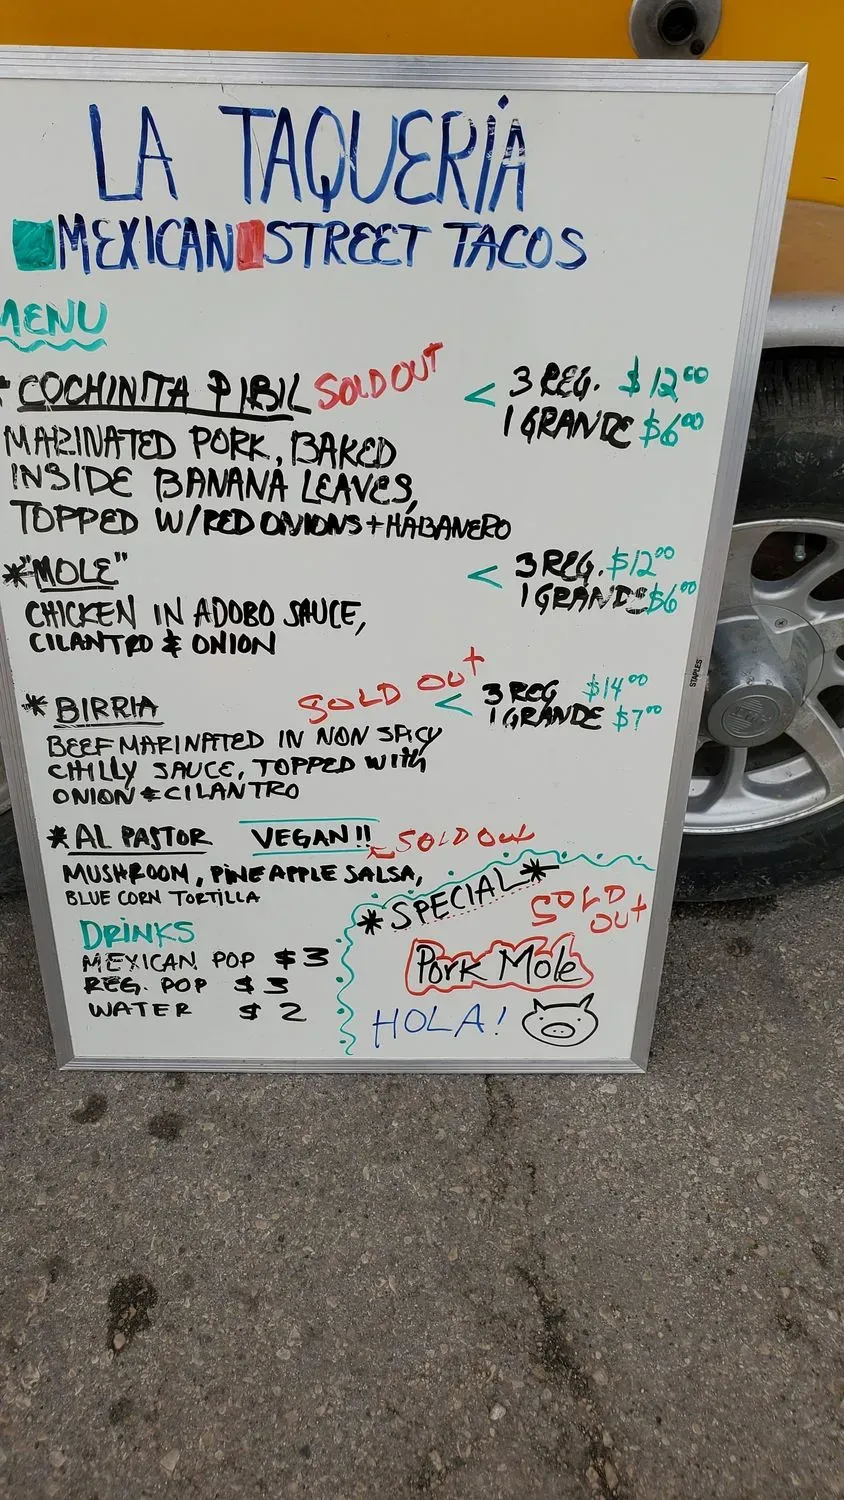 LA TAQUERÍA
MEXICAN STREET TACOS
MENU
* COCHINITA PIBIL SOLD OUT < 3 REG. $12.00
1 GRANDE $6.00
MARINATED PORK, BAKED
INSIDE BANANA LEAVES,
TOPPED W/RED ONIONS + HABANERO
* "MOLE" < 3 REG. $12.00
1 GRANDE $6.00
CHICKEN IN ADOBO SAUCE,
CILANTRO & ONION
* BIRRIA SOLD OUT < 3 REG $14.00
1 GRANDE $7.00
BEEF MARINATED IN NON SPICY
CHILLY SAUCE, TOPPED WITH
ONION & CILANTRO
* AL PASTOR VEGAN!! SOLD OUT
MUSHROOM, PINEAPPLE SALSA,
BLUE CORN TORTILLA
DRINKS
MEXICAN POP $3
REG. POP $3
WATER $2
* SPECIAL * SOLD OUT
Pork Mole
HOLA!
STAPLES